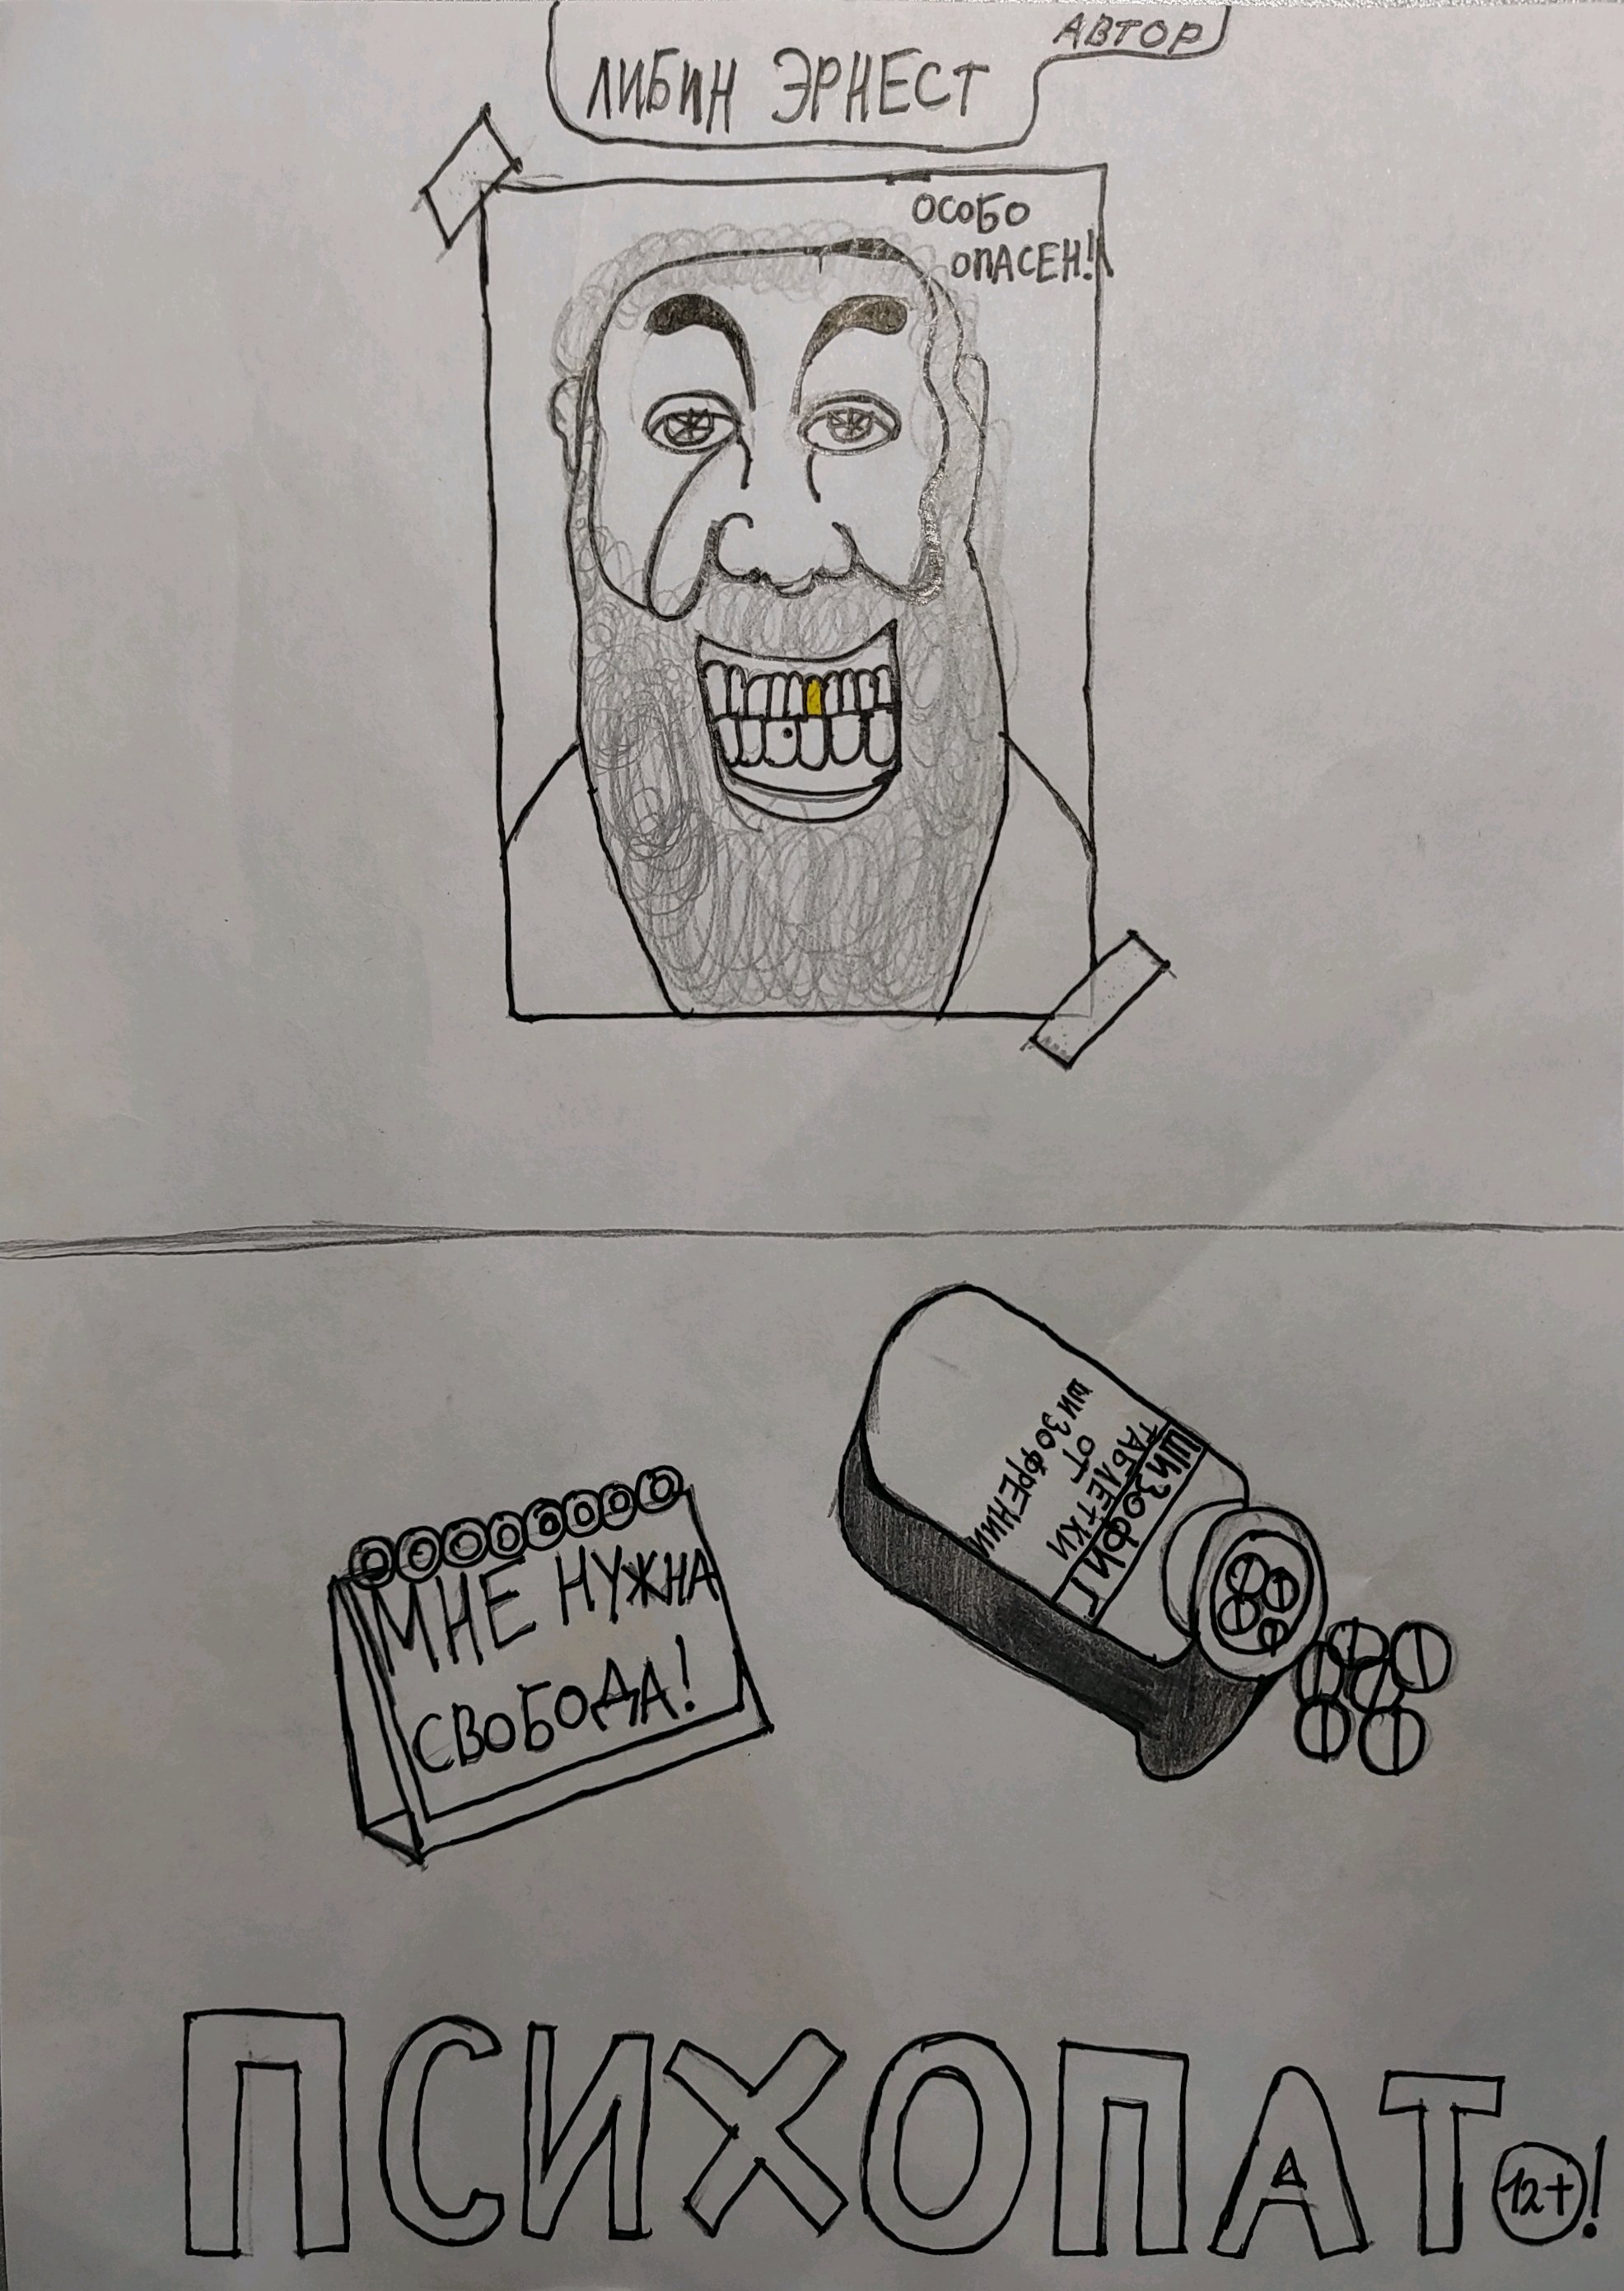 АВТОР
ЛИБИН ЭРНЕСТ
ОСОБО
ОПАСЕН!
ШИЗОФИГ
ТАБЛЕТКИ
ОТ
ШИЗОФРЕНИИ
МНЕ НУЖНА
СВОБОДА!
ПСИХОПАТ
12+!